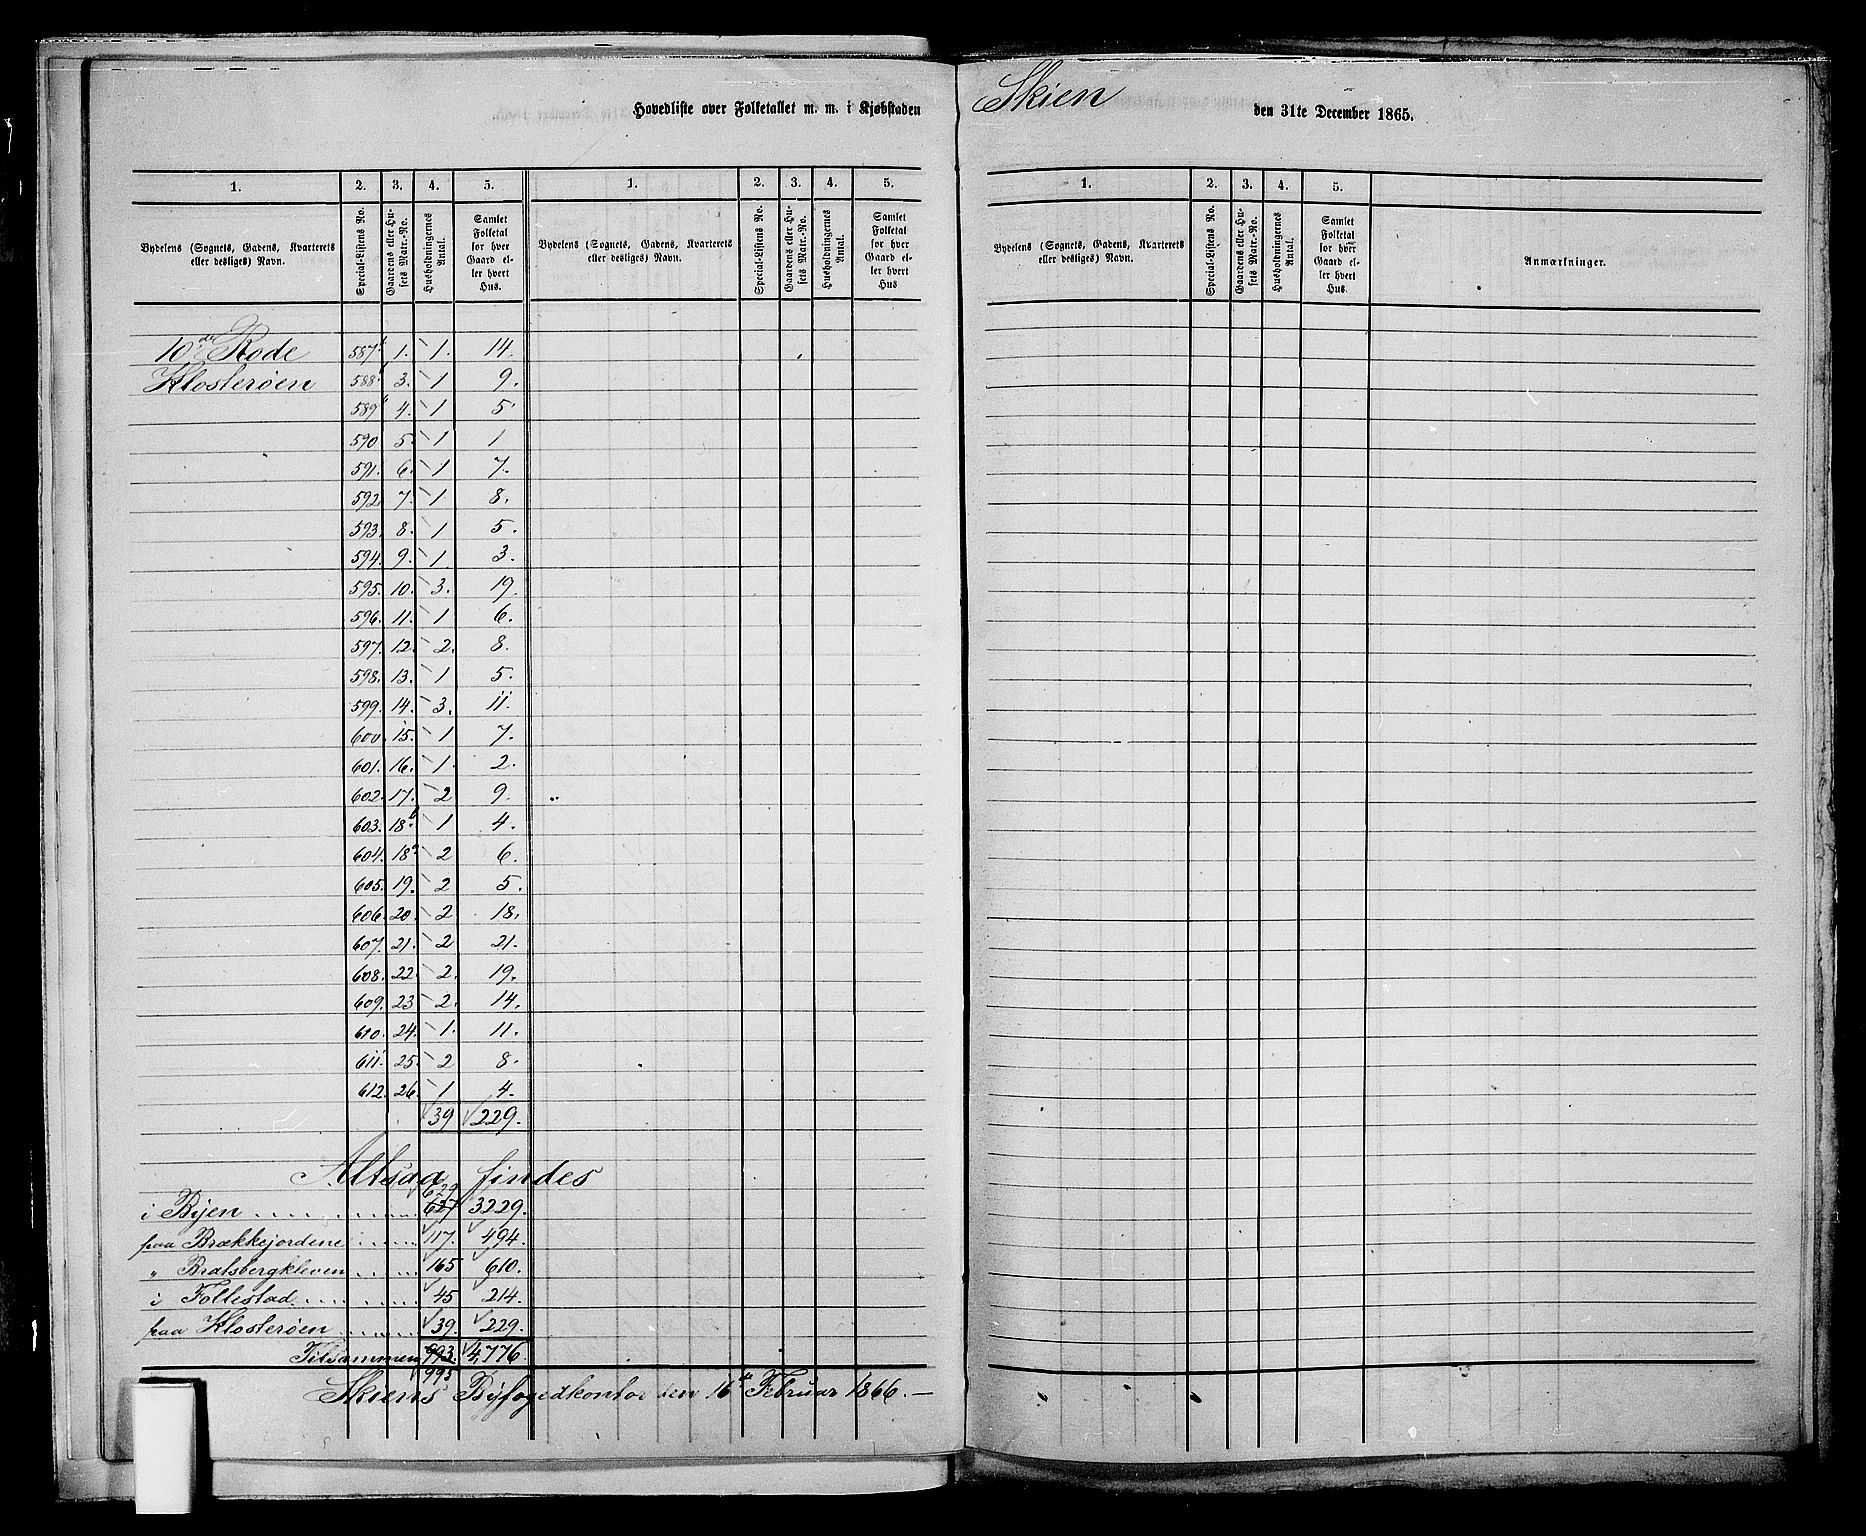 Hovedliste over Folketallet m. m. i Kjøbstaden Skien den 31te December 1865.
1. 2. 3. 4. 5. 1. 2. 3. 4. 5. 1. 2. 3. 4. 5.
Bydelens (Sognets, Gadens, Kvarterets eller desliges) Navn. Special-Listens No. Gaardens eller Husets Matr.-No. Husholdningernes Antal. Samlet Folketal for hver Gaard eller hvert Hus.
Bydelens (Sognets, Gadens, Kvarterets eller desliges) Navn. Special-Listens No. Gaardens eller Husets Matr.-No. Husholdningernes Antal. Samlet Folketal for hver Gaard eller hvert Hus
Bydelens (Sognets, Gadens, Kvarterets eller desliges) Navn. Special-Listens No. Gaardens eller Husets Matr.-No. Husholdningernes Antal. Samlet Folketal for hver Gaard eller hvert Hus. Anmærkninger.
10de Rode 587 1. 1. 14.
Klosterøen 588 3. 1 9.
589 4. 1 5
590 5. 1 1
591. 6. 1 7.
592 7. 1 8.
593. 8. 1 5.
594. 9. 1 3.
595. 10. 3. 19.
596. 11. 1 6.
597. 12. 2. 8.
598. 13. 1 5.
599. 14. 3. 11.
600. 15. 1 7.
601. 16. 1. 2.
602. 17. 2 9.
603. 18b 1 4.
604. 18a 2 6.
605. 19. 2 5.
606. 20. 2 18.
607. 21. 2 21.
608. 22. 2. 19.
609. 23 2. 14.
610. 24. 1. 11.
611. 25. 2 8.
612. 26. 1 4.
39 229.
Altsaa findes
629
i Byen 627 3229.
paa Brækkejordene 117. 494.
" Bratsbergkleven 165 610.
i Follestad 45 214.
paa Klosterøen 39. 229.
Tilsammen 993. 4,776.
995
Skiens Byfogedkontor den 16de Februar 1866.